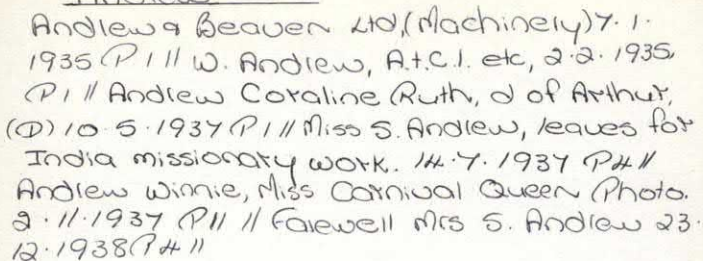 Andrew & Beaven Ltd,(Machinery)7.1.
1935 P1 // W. Andrew, A.t.C.I. etc, 2.2.1935,
P1 // Andrew Coraline Ruth, d of Arthur,
(D) 10.5.1937 P1 // Miss S. Andrew, leaves for
India missionary work. 14.7.1937 P4 //
Andrew Winnie, Miss Carnival Queen Photo.
2.11.1937 P11 // Farewell Mrs S. Andrew 23.
12.1938 P4 //